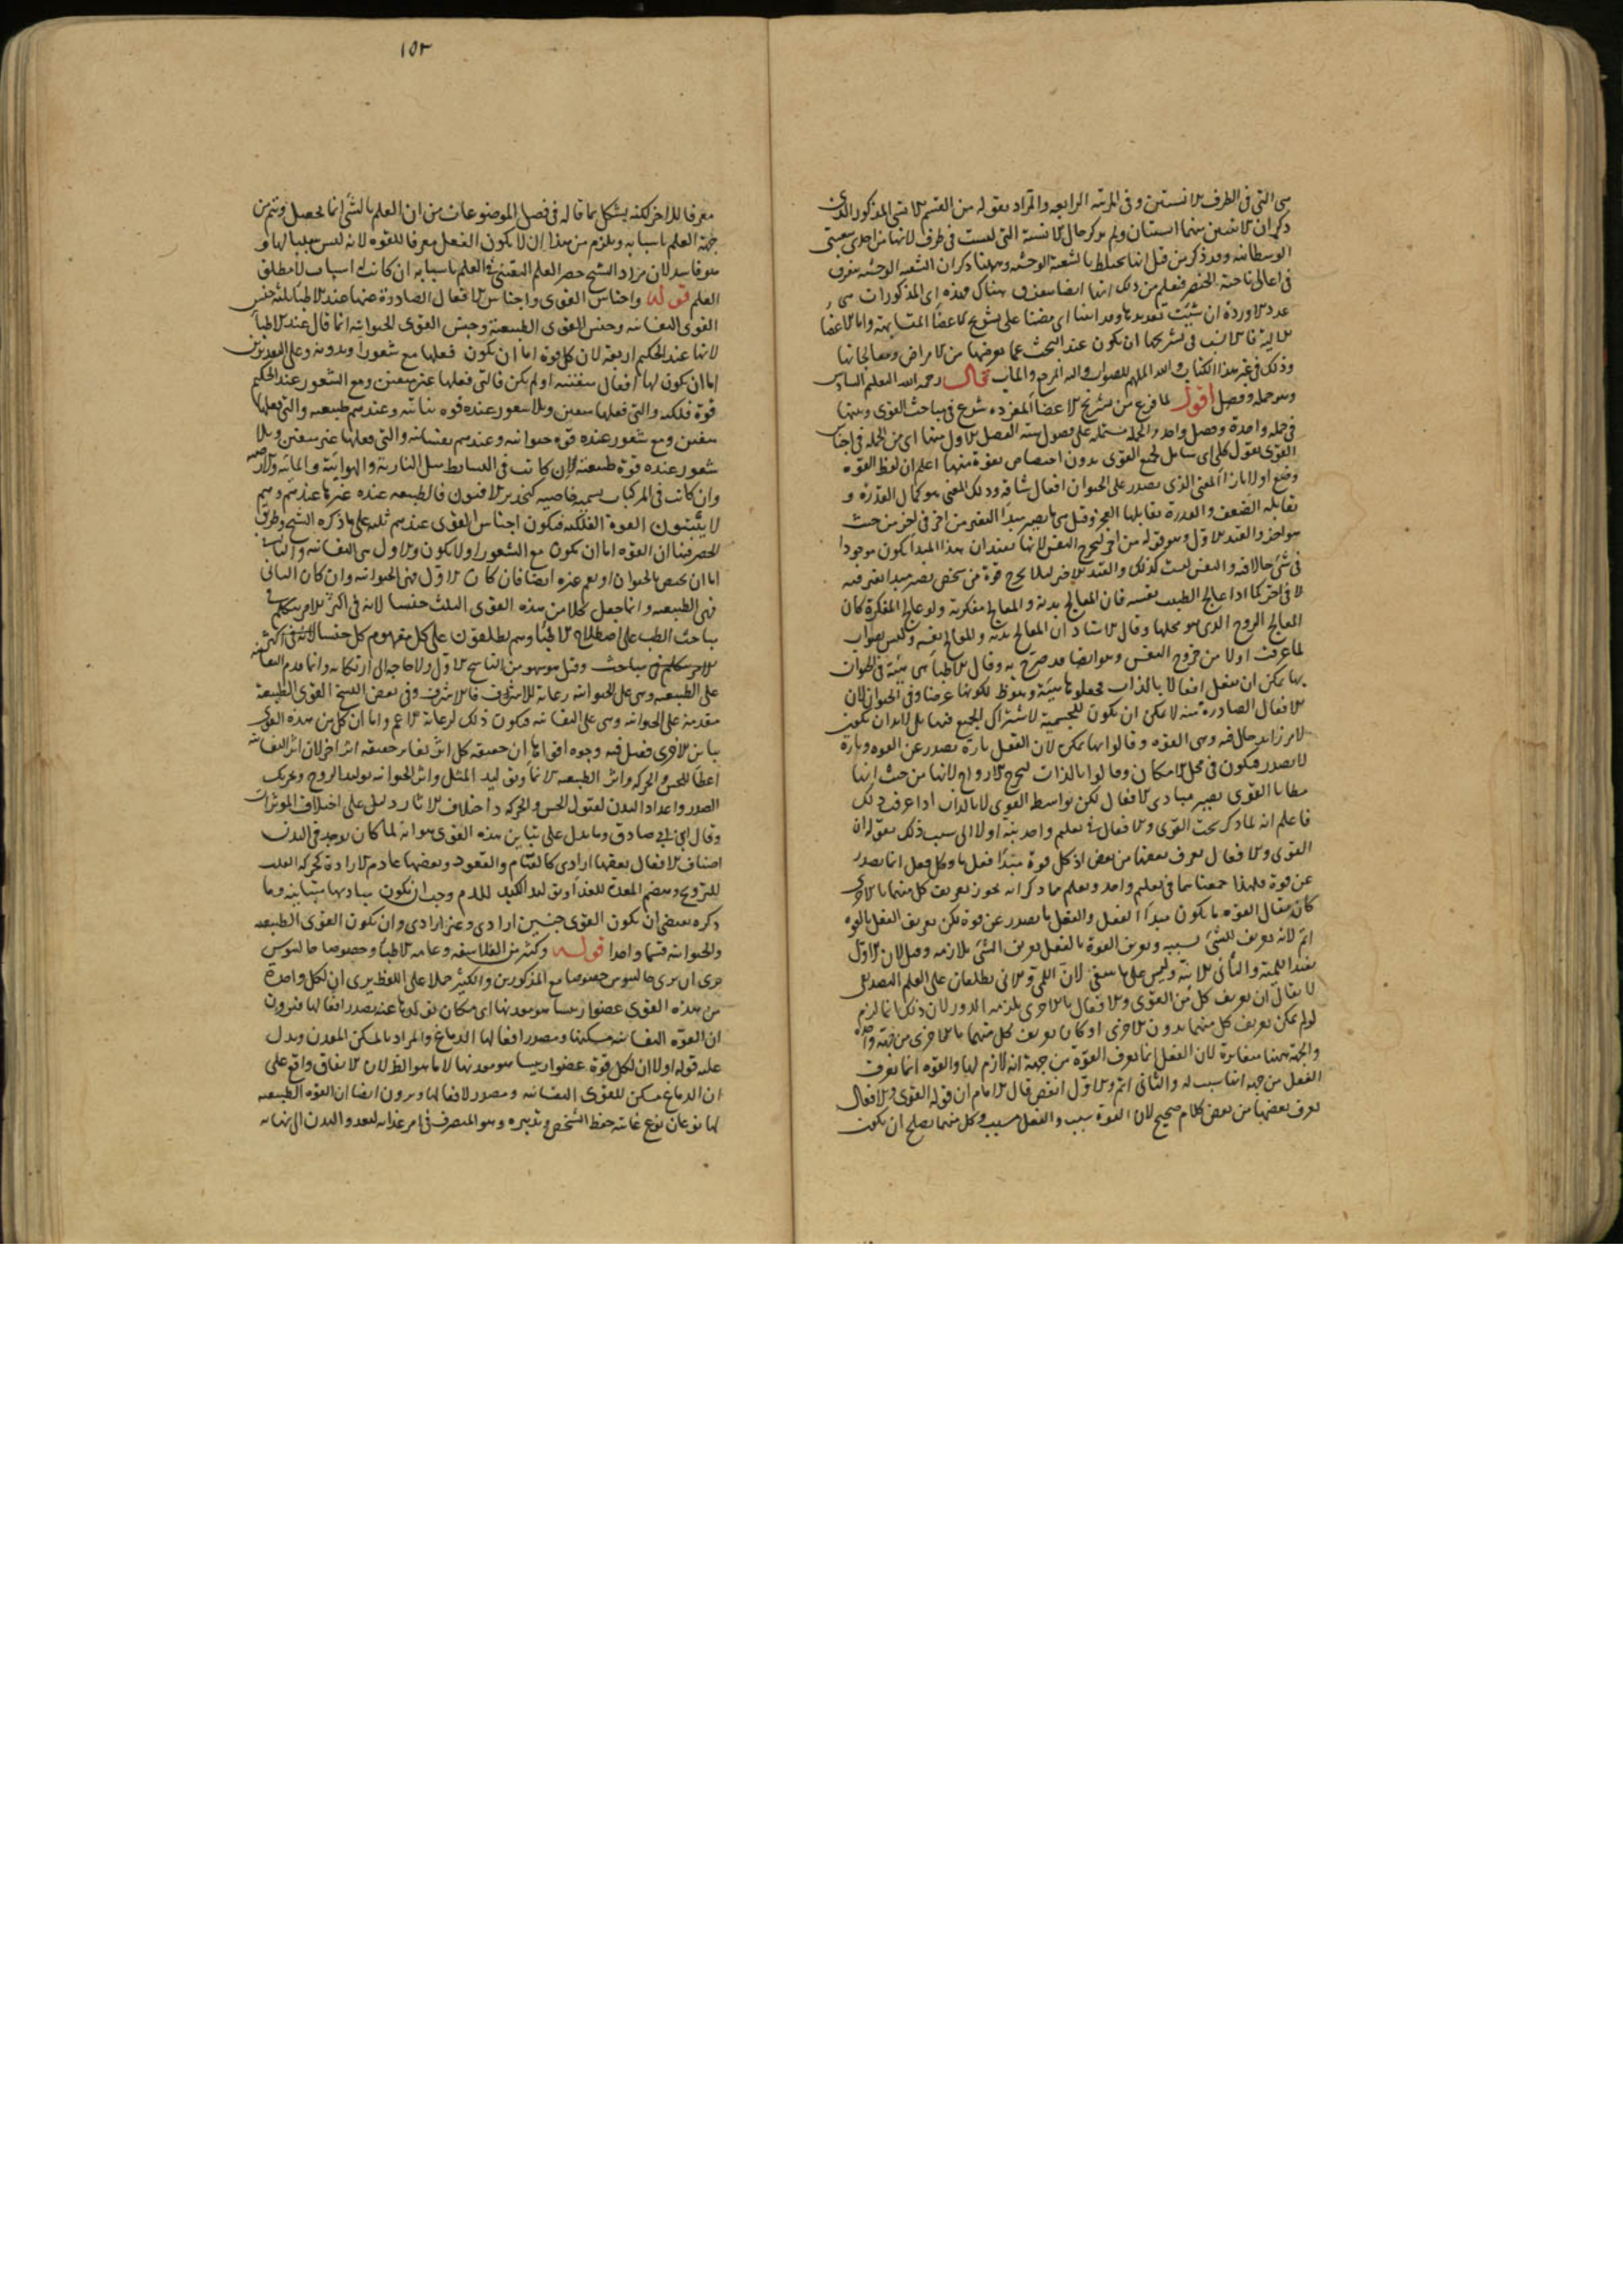 هى التى فى الطرف الانسيتين وفى المرتبة الرابعة والمراد بقوله من القسم الانسى المذكور الذى
ذكر ان الانسيين منهما اسنان ولم يذكر حال الانسية التى ليست فى طرف لانها من احدى شعبتى
فى اعالى ناحية الخنصر فتعلم من ذلك انها ايضا هناك وهذه اى المذكورات هى
عدد الاوردة ان شئت تعديدها وقد اتينا اى مضينا على تشريح الاعضا المتشابهة واما الاعضا
الالية فالانسب فى تشريحها ان يكون عند البحث عما يعرضها من الامراض ومعالجاتها
وذلك فى غير هذا الكتاب والله الملهم للصواب واليه المرجع والماب قال رحمه الله التعليم السادس
وهو جملة وفصل اقول لما فرغ من تشريح الاعضا المفردة شرع فى مباحث القوى وبينها
فى جملة واحدة وفصل واحد والجملة مشتملة على فصول ستة الفصل الاول منها اى من الجملة فى اجناس
القوى بقول كلى اى شامل لجميع القوى بدون اختصاص بقوة منها اعلم ان لفظ القوة
وضع اولا بازا المعنى الذى يصدر على الحيوان افعال شاقة وذلك المعنى هو كمال القدرة و
يقابله الضعف والقدرة يقابلها العجز وقيل هى ما يصير مبدا التغير من اخر فى اخر من حيث
هو اخر والقيد الاول وهو قوله من اخر ليخرج النفس لانها تفيد ان هذا المبدا يكون موجودا
فى شئ حالا فيه والنفس ليست كذلك والقيد الاخر لئلا يخرج قوة من شخص يصير مبدا تغير فيه
لا فى اخر كما اذا عالج الطبيب نفسه فان المعالج بدنه والمعالج مفكرته ولو عالج المفكرة كان
المعالج الروح الذى هو محلها وقال الاستاد ان المعالج بدنه والمعالج نفسه وليس بصواب
لما عرفت اولا من خروج النفس وهو ايضا قد صرح به وقال الاطبا هى هيئة فى الحيوان
بها يمكن ان يفعل افعالا بالذات فجعلوها هيئة وقوة لكونها عرضا وفى الحيوان لان
الافعال الصادرة منه لا يمكن ان تكون للجسمية لاشتراك الجميع فيها بل لابد ان تكون
لامر زائد حال فيه وهى القوة وقالوا بها يمكن لان الفعل تارة يصدر عن القوة وتارة
لا يصدر فيكون فى محل الامكان وقالوا بالذات ليخرج الارواح لانها من حيث انها
مطايا القوى يصير مبادى الافعال لكن بواسطة القوى لا بالذات اذا عرفت ذلك
فاعلم انه لما ذكر بحث القوى والافعال فى تعليم واحد نبه اولا الى سبب ذلك بقوله ان
القوى والافعال يعرف بعضها من بعض اذ كل قوة مبدا فعل ما وكل فعل انما يصدر
عن قوة فلهذا جمعناهما فى تعليم واحد ويعلم مما ذكر انه يجوز تعريف كل منهما بالاخرى
كان يقال القوة ما يكون مبدا الفعل والفعل ما يصدر عن قوة لكن تعريف الفعل بالقوة
اتم لانه تعريف الشئ بسببه وتعريف القوة بالفعل تعريف الشئ بلازمه وقيل لان الاول
يفيد اللمية والثانى الانية وليس على ما ينبغى لان اللمى والانى يطلعان على العلم التصديقى
لا يقال ان تعريف كل من القوى والافعال بالاخرى يلزمه الدور لان ذلك انما لزم
لو لم يمكن تعريف كل منهما بدون الاخرى او كان تعريف كل منهما بالاخرى من جهة واحدة
والجهة ههنا متغايرة لان الفعل انما يعرف القوة من جهة انه لازم لها والقوة انما يعرف
الفعل من جهة انها سبب له والثانى اتم والاول انقص قال الامام ان قوله القوى والافعال
يعرف بعضها من بعض كلام صحيح لان القوة سبب والفعل مسبب وكل منهما يصلح ان يكون
١٥٢
معرفا للاخر لكنه يشكل بما قاله فى فصل الموضوعات من ان العلم بالشئ انما يحصل ويتم من
جهة العلم باسبابه ويلزم من هذا ان لا يكون الفعل معرفا للقوة لانه ليس سببا لها و
هو فاسد لان مراد الشيخ حصر العلم اليقينى فى العلم باسبابه ان كانت له اسباب لا مطلق
العلم قوله واجناس القوى واجناس الافعال الصادرة عنها عند الاطبا ثلثة جنس
القوى النفسانية وجنس القوى الطبيعية وجنس القوى الحيوانية انما قال عند الاطبا
لانها عند الحكيم اربعة لان كل قوة اما ان يكون فعلها مع شعور او بدونه وعلى التقديرين
اما ان يكون لها افعال متفننة او لم يكن فالتى فعلها غير متعين ومع الشعور عند الحكيم
قوة فلكية والتى فعلها متعين وبلا شعور عنده قوة نباتية وعندهم طبيعية والتى فعلها
متفنن ومع شعور عنده قوة حيوانية وعندهم نفسانية والتى فعلها غير متفنن وبلا
شعور عنده قوة طبيعية لان كانت فى البسايط مثل النارية والهوائية والمائية والارضية
وان كانت فى المركبات يسمى خاصية كتبريد الافيون فالطبيعية عنده غيرها عندهم وهم
لا يثبتون القوة الفلكية فيكون اجناس القوى عندهم ثلثة على ما ذكره الشيخ وطريق
الحصر هنا ان القوة اما ان تكون مع الشعور او لا يكون والاول هى النفسانية والثانية
اما ان يختص بالحيوان او يعم غيره ايضا فان كان الاول فهى الحيوانية وان كان الثانى
فهى الطبيعية وانما جعل كلا من هذه القوى الثلث جنسا لانه فى اكثر الامر يتكلم فى
مباحث الطب على اصطلاح الاطبا وهم يطلقون على كل مفهوم كل جنسا
مباحث وقيل هو سهو من الناسخ الاول ولا حاجة الى ارتكابه وانما قدم النفسانية
على الطبيعية وهى على الحيوانية رعاية للاشرف فالاشرف وفى بعض النسخ القوى الطبيعية
مقدمة على الحيوانية وهى على النفسانية فيكون ذلك لرعاية الاعم واما ان كل من هذه القوى
يباين الاخرى فقيل فيه وجوه اقواها ان حقيقة كل اثر تغاير حقيقة اثر اخر لان اثر النفسانية
اعطا الحس والحركة واثر الطبيعية الانما وتوليد المثل واثر الحيوانية توليد الروح وتحريك
الصدر واعداد البدن لقبول الحس والحركة واختلاف الاثار دليل على اختلاف الموثرات
وقال ابن ابى صادق ومما يدل على تباين هذه القوى هو انه لما كان يوجد فى البدن
اصناف الافعال بعضها ارادى كالقيام والقعود وبعضها عادم الارادة كحركة القلب
للترويح وهضم المعدة للغذا وتوليد الكبد للدم وجب ان تكون مباديها متباينة وما
ذكره يقتضى ان يكون القوى جنسين ارادى وغير ارادى وان يكون القوى الطبيعية
والحيوانية قسما واحدا قوله وكثير من الفلاسفة وعامة الاطبا وخصوصا جالينوس
يرى ان يرى جالينوس خصوصا مع المذكورين والكثير حملا على اللفظ يرى ان لكل واحدة
من هذه القوى عضوا رئيسا هو معدنها اى مكان تولدها عنه يصدر افعالها فيرون
ان القوة النفسانية مسكنها ومصدر افعالها الدماغ والمراد بالمسكن المعدن ويدل
عليه قوله اولا ان لكل قوة عضوا رئيسا هو معدنها لا ما هو الظ لان الاتفاق واقع على
ان الدماغ مسكن للقوى النفسانية ومصدر لافعالها ويرون ايضا ان القوة الطبيعية
لها نوعان نوع غايته حفظ الشخص وتدبيره وهو المتصرف فى امر غذائه ليغذو البدن الى نهاية